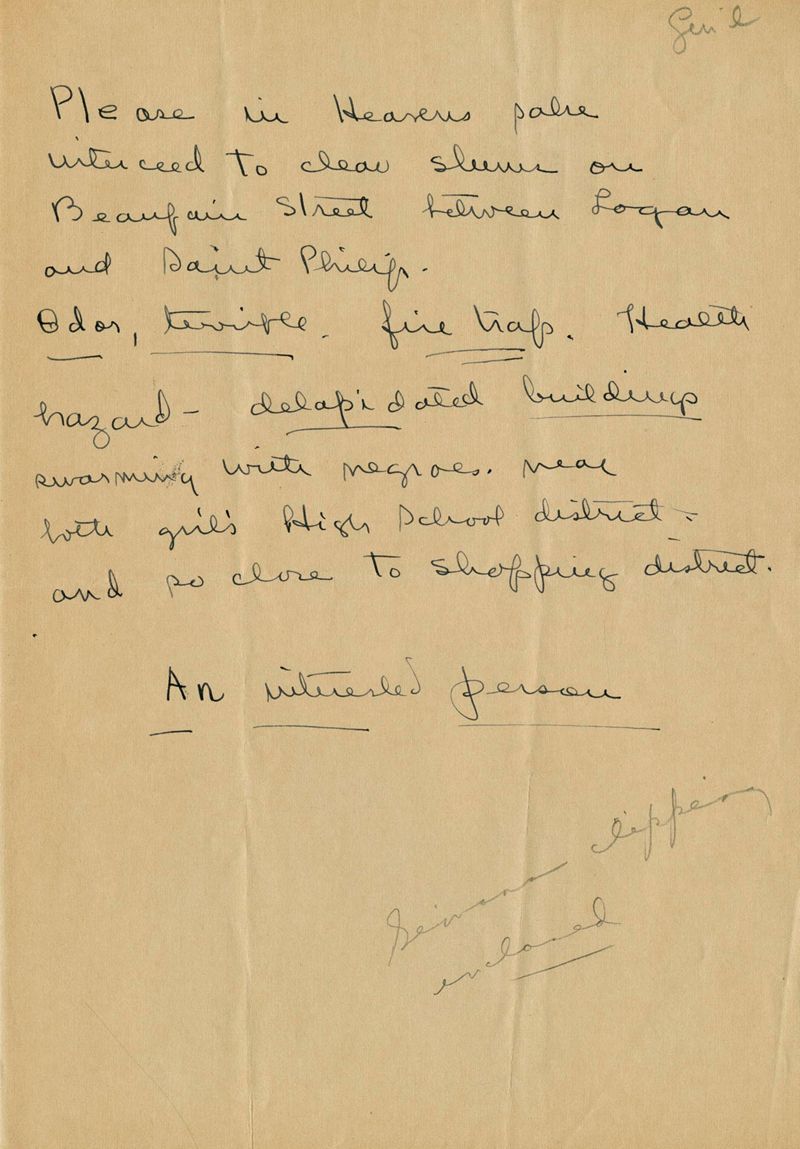 Gen'l
Please in Heavens sake
interceed to clear slums on
Beaufain Street between Logan
and Saint Philip.
Odor, terrible. fire trap. Health
hazard - delapidated buildings
swarming with negroes. near
both girl's High School district -
and so close to shopping district.
An interested person
clipping
enclosed